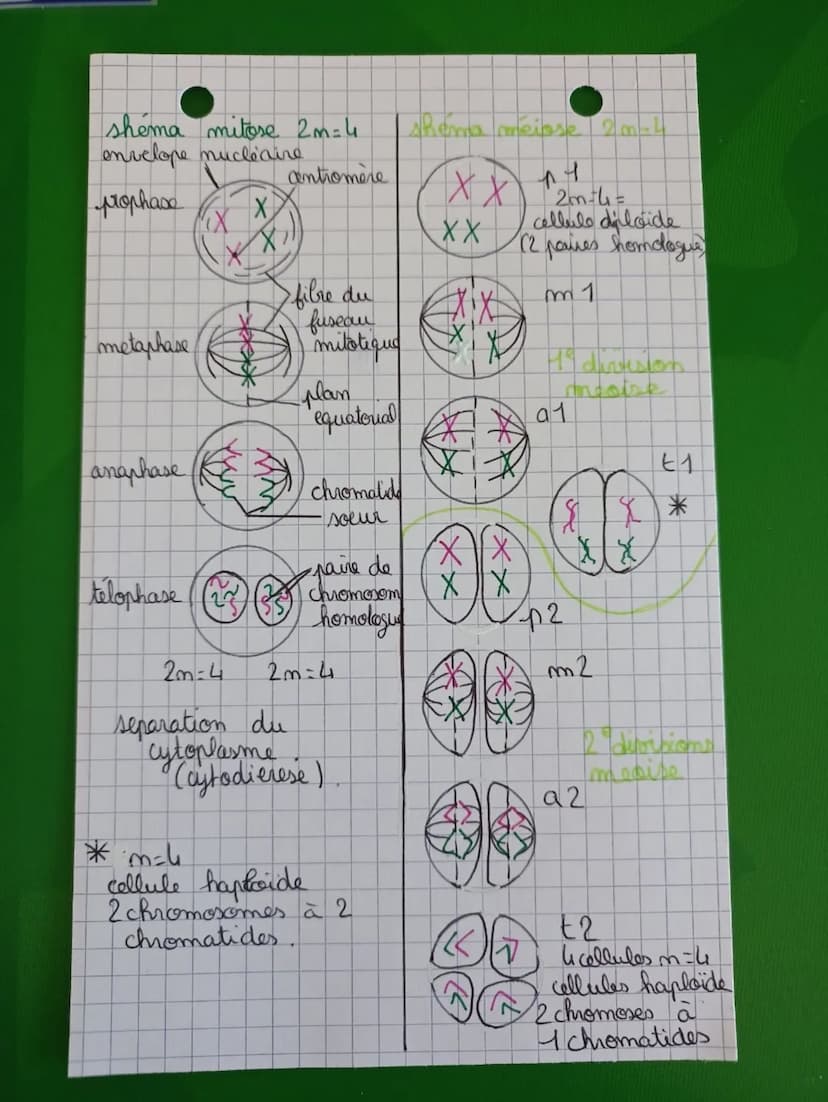 shéma mitose 2m=4
envelope nucléaire
centromère
prophase
fibre du
fuseau
mitotique
metaphase
plan
equatorial
anaphase
chromatid
soeur
télophase
paire de
chromosom
homologue
2m=4 2m=4
separation du
cytoplasme.
(cytodierese).
* m=4
cellule haploide
2 chromosomes à 2
chromatides.
shéma méiose 2m=4
p1
2m=4=
cellule diploïde
(2 paires homologue)
m1
1° division
meoise
a1
t1
*
p2
m2
2° divisions
meoise
a2
t2
4 cellules m=4
cellules haploïde
2 chromoses à
1 chromatides